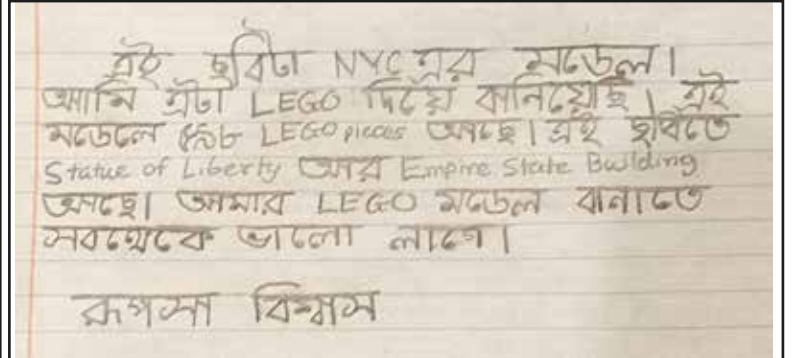 এই ছবিটা NYC এর মডেল।
আমি এটা LEGO দিয়ে বানিয়েছি। এই
মডেলে ৫৯৮ LEGO pieces আছে। এই ছবিতে
Statue of Liberty আর Empire State Building
আছে। আমার LEGO মডেল বানাতে
সবথেকে ভালো লাগে।
রূপসা বিশ্বাস